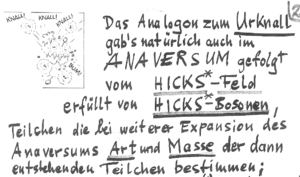 KNALL! KNALL!
KNALL!
BUM!
Das Analogon zum Urknall
gab's natürlich auch im
ANAVERSUM gefolgt
vom HICKS*-Feld
erfüllt von HICKS*-Bosonen,
Teilchen die bei weiterer Expansion des
Anaversums Art und Masse der dann
entstehenden Teilchen bestimmen;